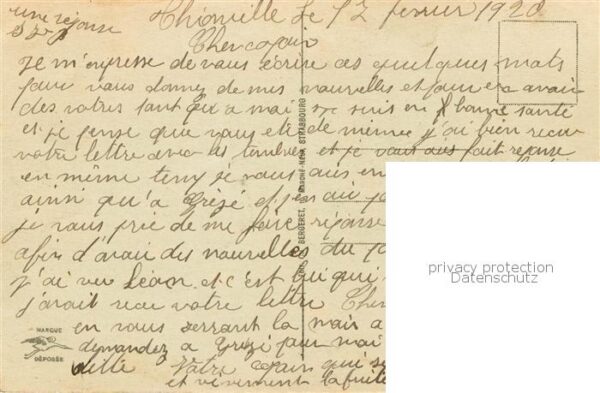 une réponse
SVP
Thionville le 12 fevrier 1920
Cher copain
Je m'enpresse de vous écrire ces quelques mots
pour vous donner de mes nouvelles et pour en avoir
des votres tant qu'a moi je suis en bonne santé
et je pense que vous ete de même j'ai bien recu
votre lettre avec les timbres et je vous ais fait reponse
en même temp je vous ais en
ainsi qu'a Grézé et
je vous prie de me faire réponse
afin d'avoir des nouvelles du
j'ai vu Léon et c'est lui qui
j'avait recu votre lettre Cher
en vous serrant la main a
demandez a Grezé pour moi
Votre copain qui se
et vivement la fuite
PHOT. BERGERET, MARCHÉ-NEUF, STRASBOURG
MARQUE
DÉPOSÉE
privacy protection
Datenschutz